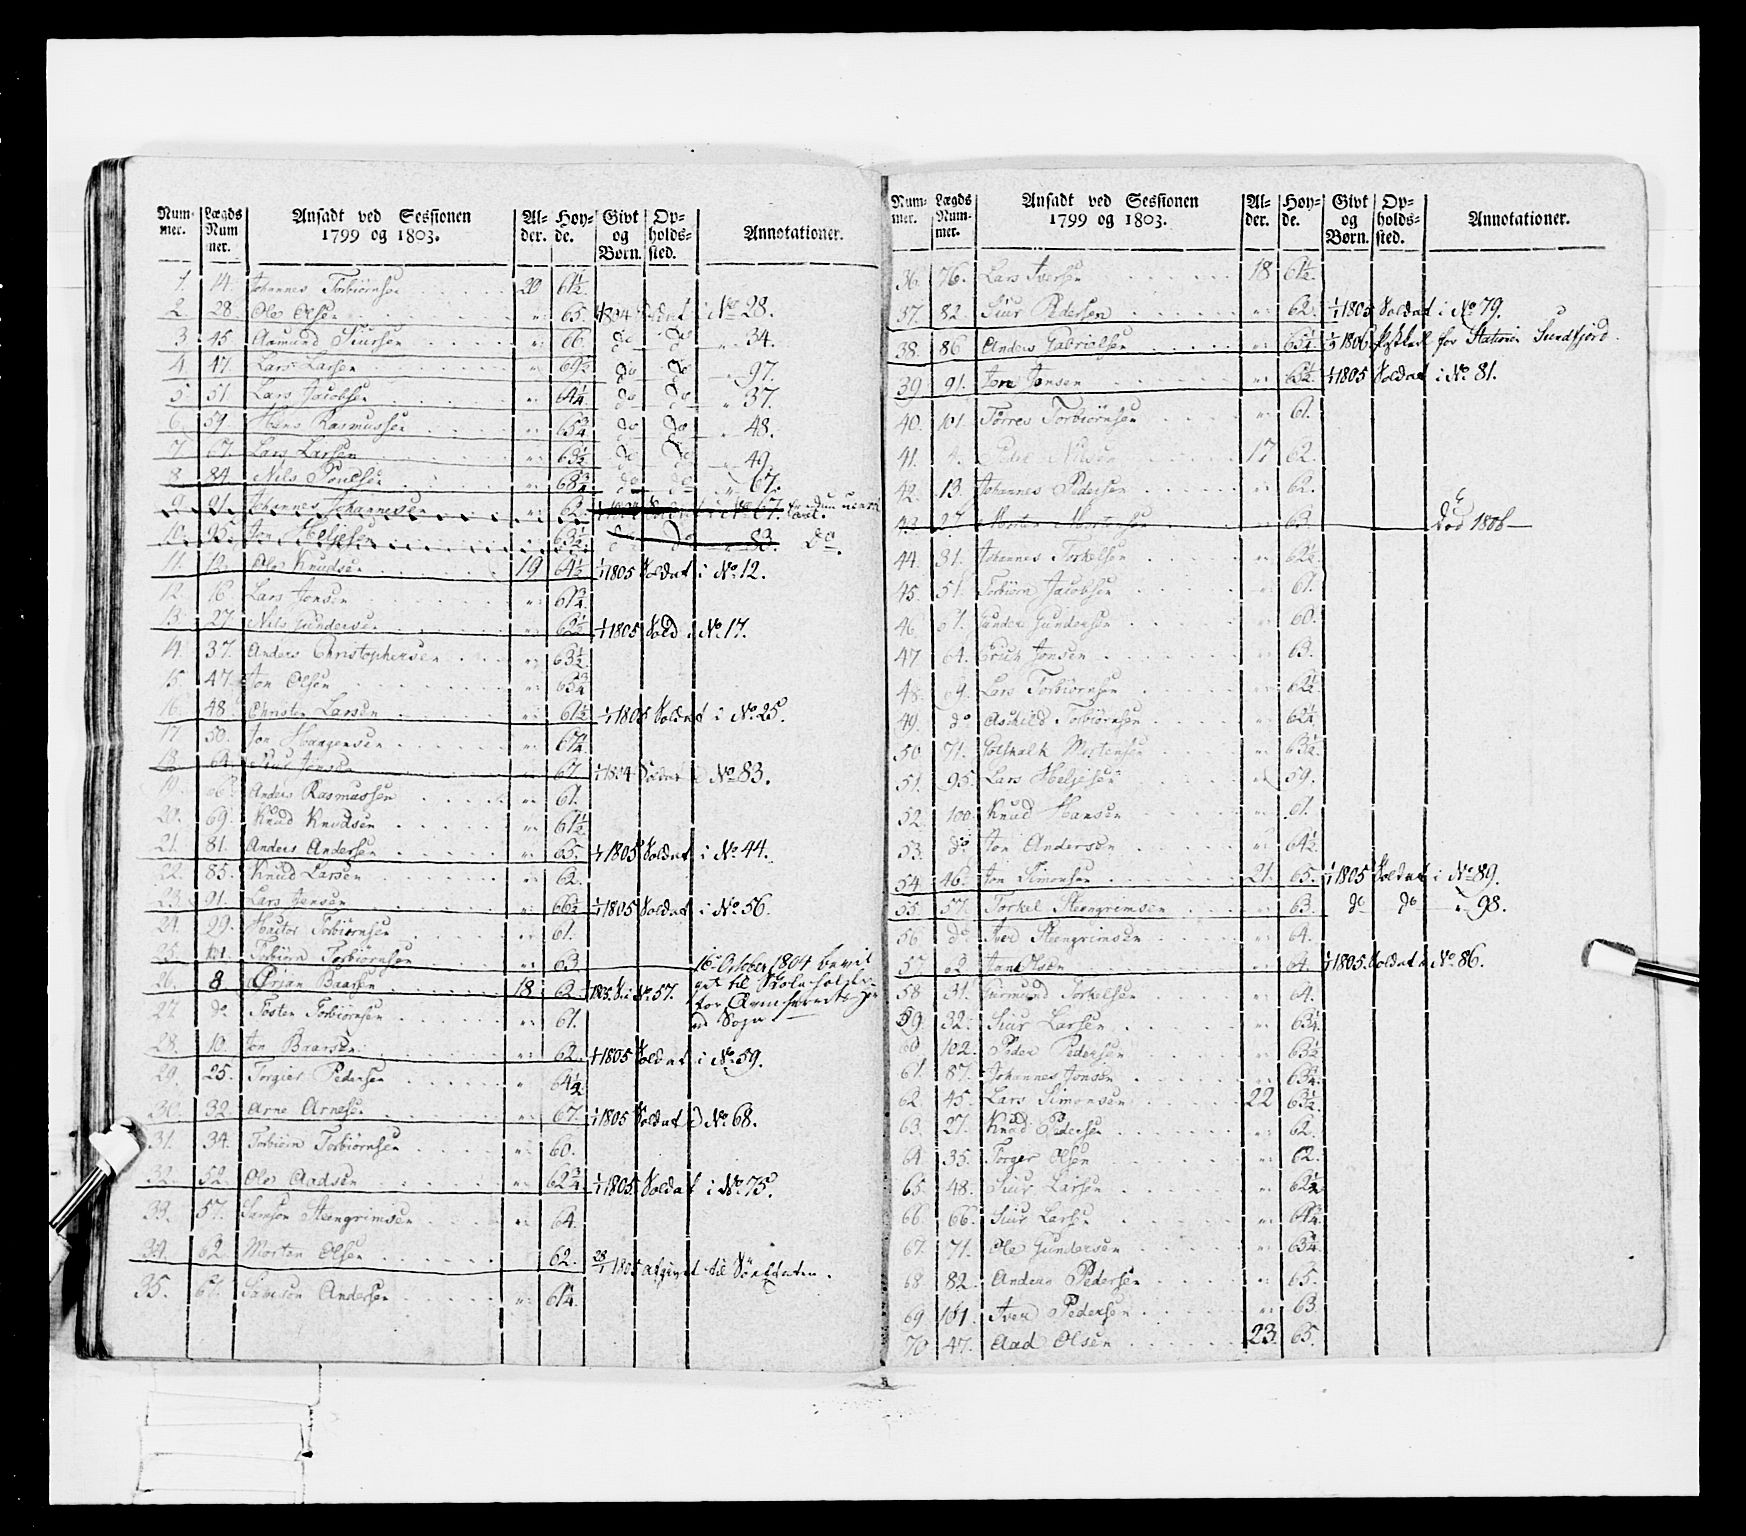 Num- Lægds Ansadt ved Sessionen Al- Høy- Givt Op- Annotationer.
mer. Num 1799 og 1803. der. de. og holds-
mer. Børn. sted.
1. 14. Johannes Torbiörnsen 20 61½
2. 28. Ole Olsen " 65. 1/1 1804 Soldat i No 28.
3. 45. Aamund Siursen " 66. do do " 34.
4. 47. Lars Larsen " do do " 97.
5. 51. Lars Jacobsen " 64¼ do do " 37.
6. 59. Hans Rasmussen " 65¾ do do " 48.
7. 67. Lars Larsen " 63½ do do " 49.
8. 84. Nils Povelsen " 68¾ do do " 67.
9. 91. Johannes Johannesen " 62.
10. 95. Jon Heljesen " 63½ do do " 83. Do.
11. 12. Ole Knudsen 19 64½ 1/1 1805 Soldat i No. 12.
12. 16. Lars Jonsen " 61¾
13. 27. Nils Gundersen " 62½ 1/1 1805 Sold. i No. 17.
14. 37. Anders Christophersen " 63½
15. 47. Jon Olsen " 65¾
16. 48. Christen Larsen " 61½ 1/1 1805 Soldat i No. 25.
17. 50. Jon Haagensen " 67¼
18. 64. Jonsen " 67. 1/1 1804 Soldat No 83.
19. 66. Anders Rasmussen " 61.
20. 69. Knud Knudsen " 61½
21. 81. Anders Andersen " 65. 1/1 1805 Soldat i No. 44.
22. 85. Knud Larsen " 62.
23. 91. Lars Jensen " 66½ 1/1 1805 Soldat i No. 56.
24. 29. Torbiörnsen " 61.
25. 101. Torbiörn Torbiörnsen " 63. 16 October 1804 bevil
26. 8 Örjan Baarsen 18. 62. 1805. S. i No 57. get til Skoleholder
27. do Tosten Torbiörnsen " 61. for
Sogn
28. 10. Jon Baarsen " 62. 1/1 1805 Soldat i No. 59.
29. 25. Torgier Pedersen " 64½
30. 32. Arne Arnesen " 67. 1/1 1805 Soldat i No. 68.
31. 34. Torbiörn Torbiörnsen " 60.
32. 52. Ole Aadsen " 62¾ 1/1 1805. Soldat i No. 75.
33. 57. Samson Steengrimsen " 64.
34. 62. Morten Olsen 62. 28/1 1805 afgivet til Söeetaten.
35. 67. Samson Andersen " 61¼
Num- Lægds Ansadt ved Sessionen Al- Høy- Givt Op- Annotationer.
mer. Num- 1799 og 1803. der. de. og holds-
mer. Børn. sted.
36. 76. Lars Iversen 18 61½
37. 82. Siur Pedersen " 62. 1/1 1805 Soldat i No 79.
38. 86 Anders Gabrielsen " 65¼ 1806 for Station Sundfjord
39 91. Jon Jonsen " 63½ 1/1 1805 Soldat i No 81.
40. 101. Torres Torbiörnsen " 61.
41. 4. Peder Nilsen 17 62.
42. 13. Johannes Pedersen " 62.
43 27. Morten Mortensen " 63. Död 1806
44. 31. Johannes Torkelsen " 62½
45. 51. Torbiörn Jacobsen " 61.
46. 61. Gunder Gundersen " 60.
47 64. Erich Jonsen " 63.
48. 69. Lars Torbiörnsen " 62½
49. do Aschild Torbiörnsen " 62¼
50. 71. Mortensen " 63½
51. 95. Lars Heljesen " 59.
52. 100 Knud Hansen " 61.
53. do Jon Andersen " 64½
54. 46. Jon Simonsen 21. 65. 1/1 1805 Soldat i No 89.
55. 57. Torkel Steengrimsen " 63. do do " 98.
56. do Iver Steengrimsen " 64.
57. 62 Jon Olsen " 64. 1/1 1805. Soldat i No 86.
58 31. Gurmund Torkelsen " 64.
59. 32. Siur Larsen " 63¼
60 102. Peder Pedersen " 63½
61. 87. Johannes Jonsen " 63¾
62. 45. Lars Simonsen 22 63½
63. 27. Knud Pedersen " 62.
64. 35. Torger Olsen " 62.
65. 48. Siur Larsen " 62½
66. 66. Siur Larsen " 64¼
67. 71. Ole Gundersen " 63¾
68 82. Anders Pedersen " 65.
69 101. Iver Pedersen " 63
70 47. Aad Olsen 23. 65.